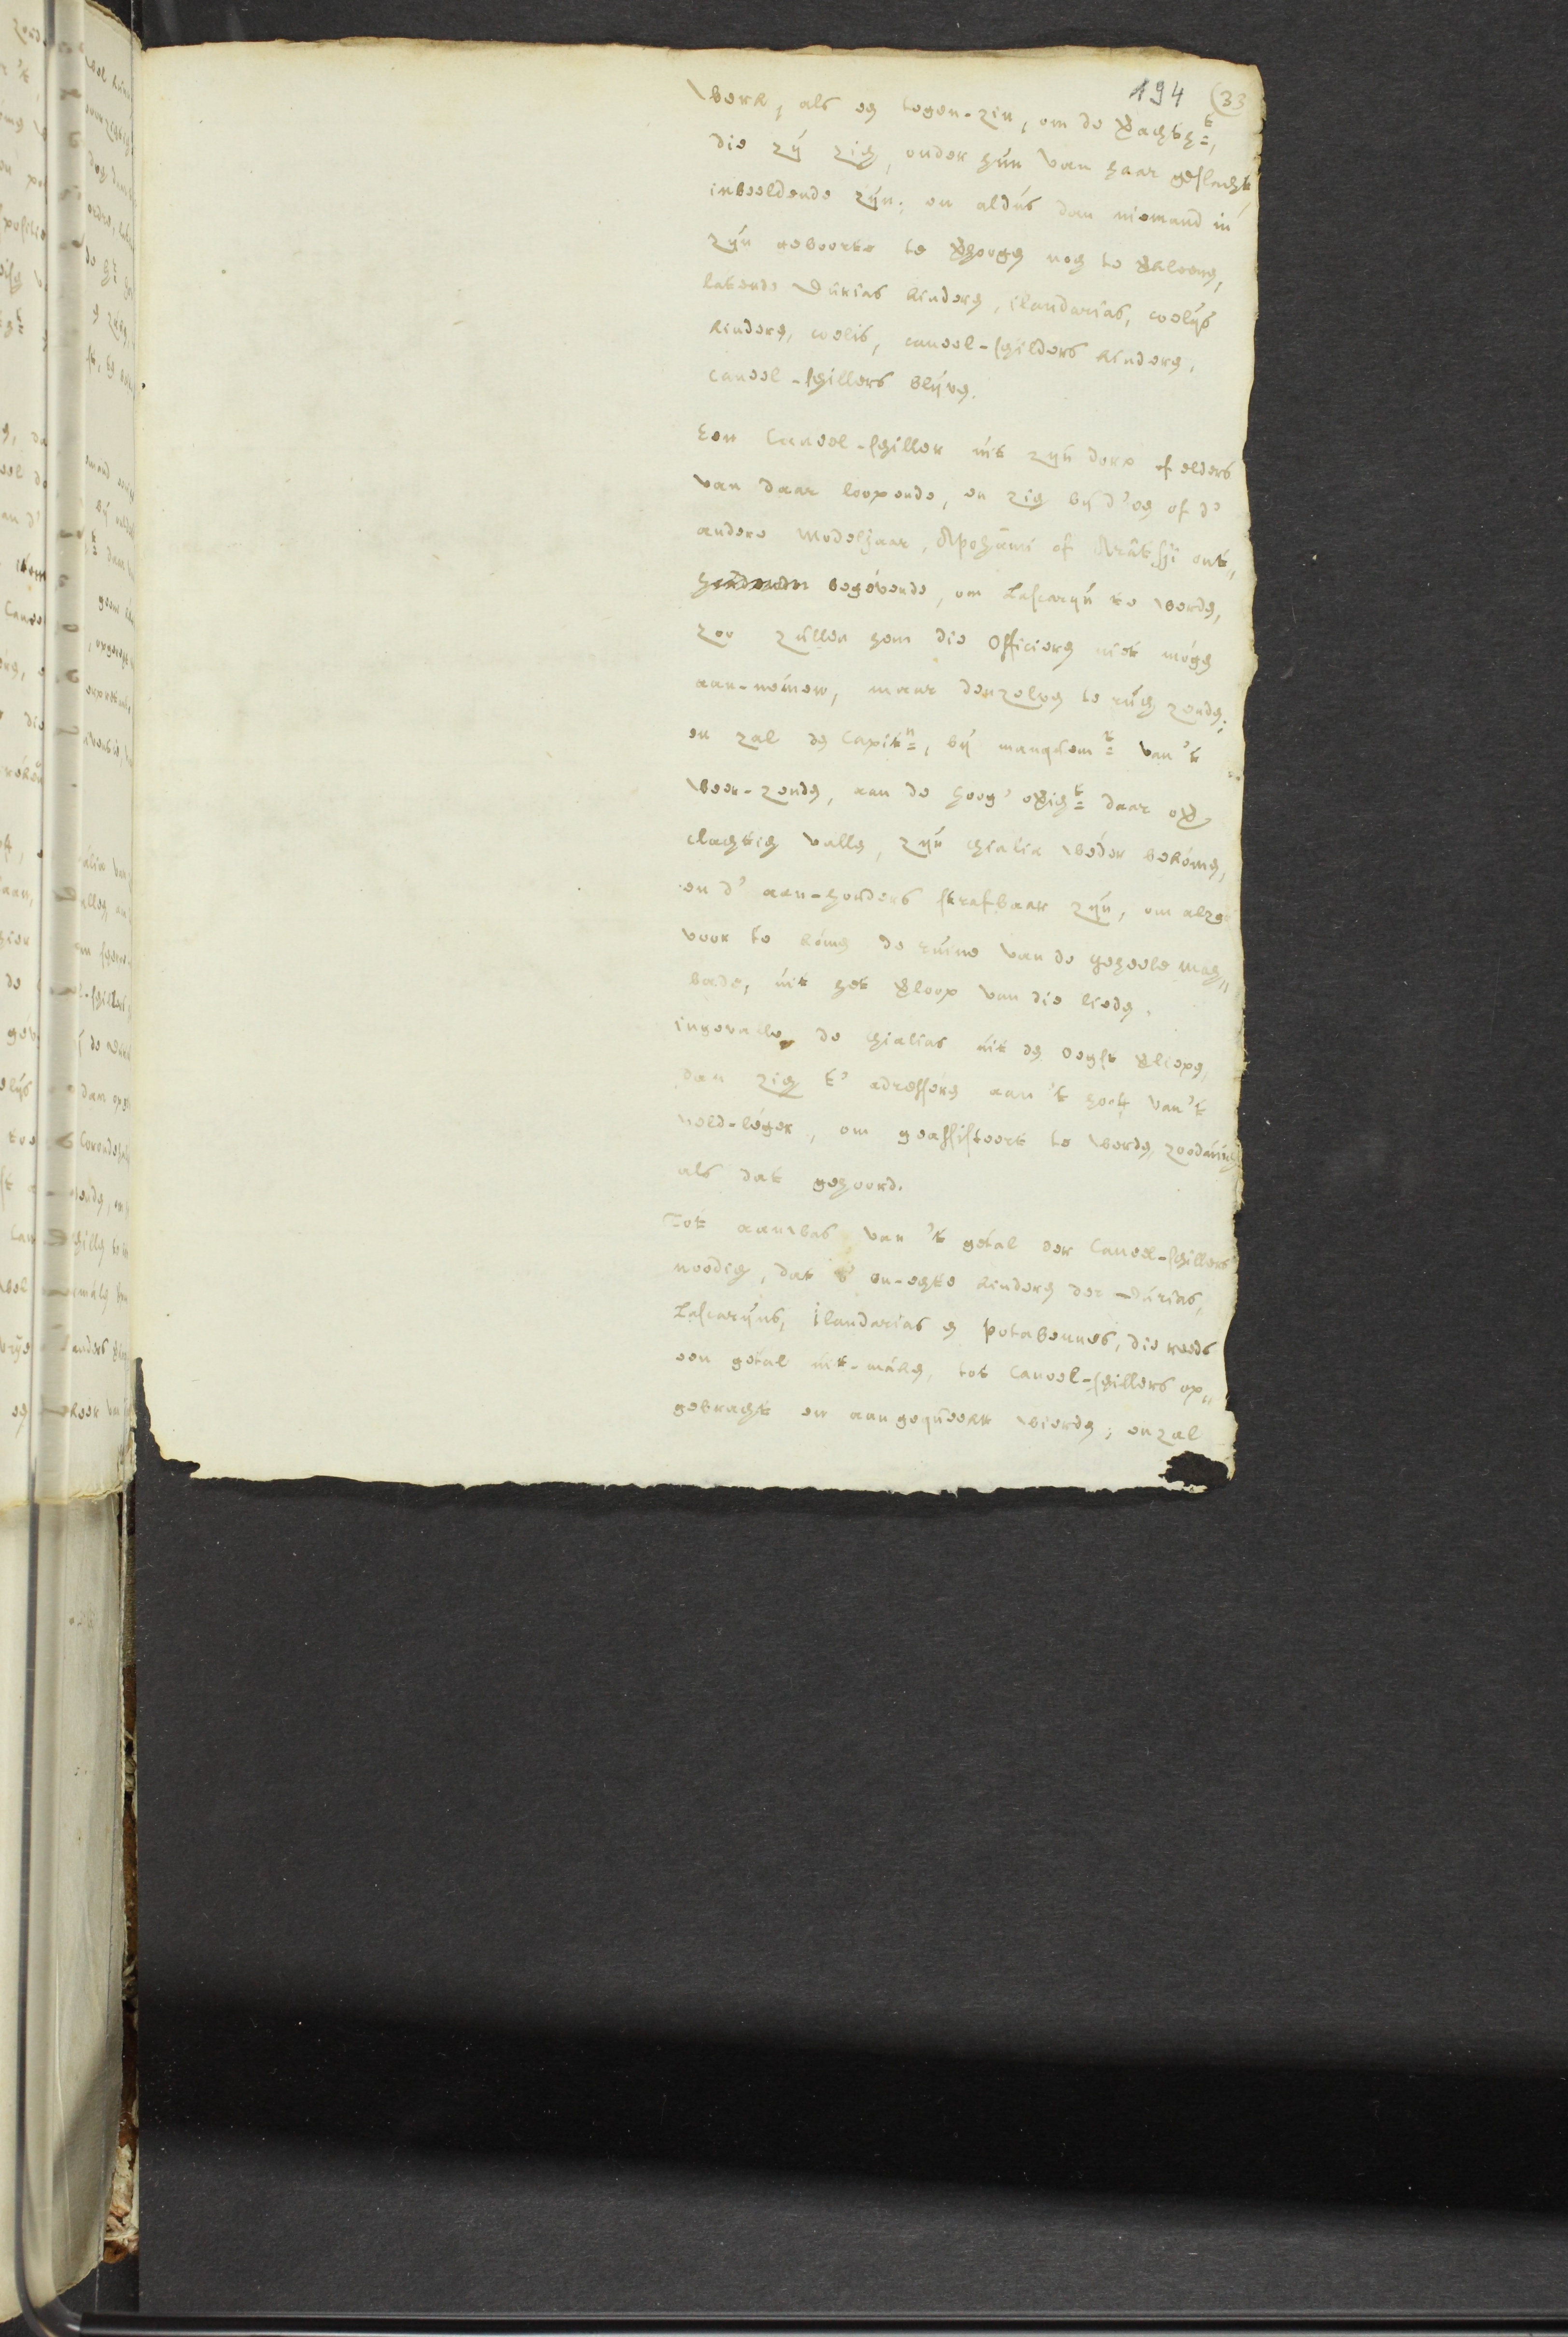 194 (33
werk, als en tegen-zin, om de
die zij zich, onder hun van haar geslacht
inbeeldende zijn; en aldus dan niemand in
zijn geboorte te verhoogen noch te verkleenen,
latende Durias kinderen, ilandarias, coelijs
kinderen, coelis, caneel-schilders kinderen,
caneel-schillers blijven.
Een Caneel-schiller uit zijn dorp of elders
van daar loopende, en zig bij d'een of d'
andere Modeljaar, Apohami of Arâtsji ont„
begévende, om Lascarijn te werden,
zoo zullen hem die Officieren niet mógen
aan-némen, maar denzelven te rúch zenden;
en zal de Capitn=, bij manquem.t= van 't
weer-zenden, aan de hoog' overich.t= daar over
clachtich vallen, zijn chialia wéder bekómen,
en d' aan-houders strafbaar zijn, om alzo
voor te kómen de ruine van de geheele mah„
bade, uit het verloop van die lieden.
ingevallen de chialias uit den oegst verliepen,
dan zig t' adresseren aan 't hooft van 't
veld-léger, om geassisteert te werden, zoodánich
als dat gehoord.
Tot aanwas van 't getal der Caneel-schillers
noodich, dat d' on-echte kinderen der Dúrias,
Lascarijns, ilandarias en potabennes, die reeds
een getal uit-máken, tot Caneel-schillers op„
gebracht en aangequeekt wierden; en zal